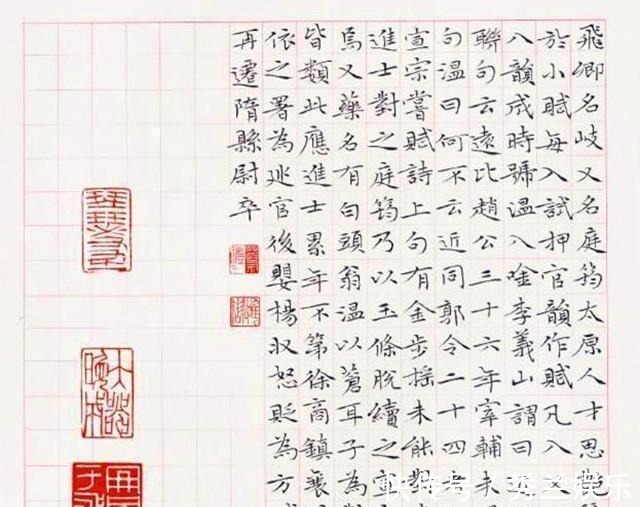 飛卿名岐又名庭筠太原人才思
於小賦每入試押官韻作賦凡八
八韻成時號温八唫李義山謂曰
聯句云遠比趙公三十六年宰輔未
句温曰何不云近同郭令二十四考
宣宗嘗賦詩上句有金步摇未能
進士對之庭筠乃以玉條脫續之宣
焉又藥名有白頭翁温以蒼耳子為對
皆類此應進士累年不第徐商鎮襄
依之署為巡官後嬰楊收怒貶為方城
再遷隋縣尉卒
大器晚成
快传号/秀兰娱乐